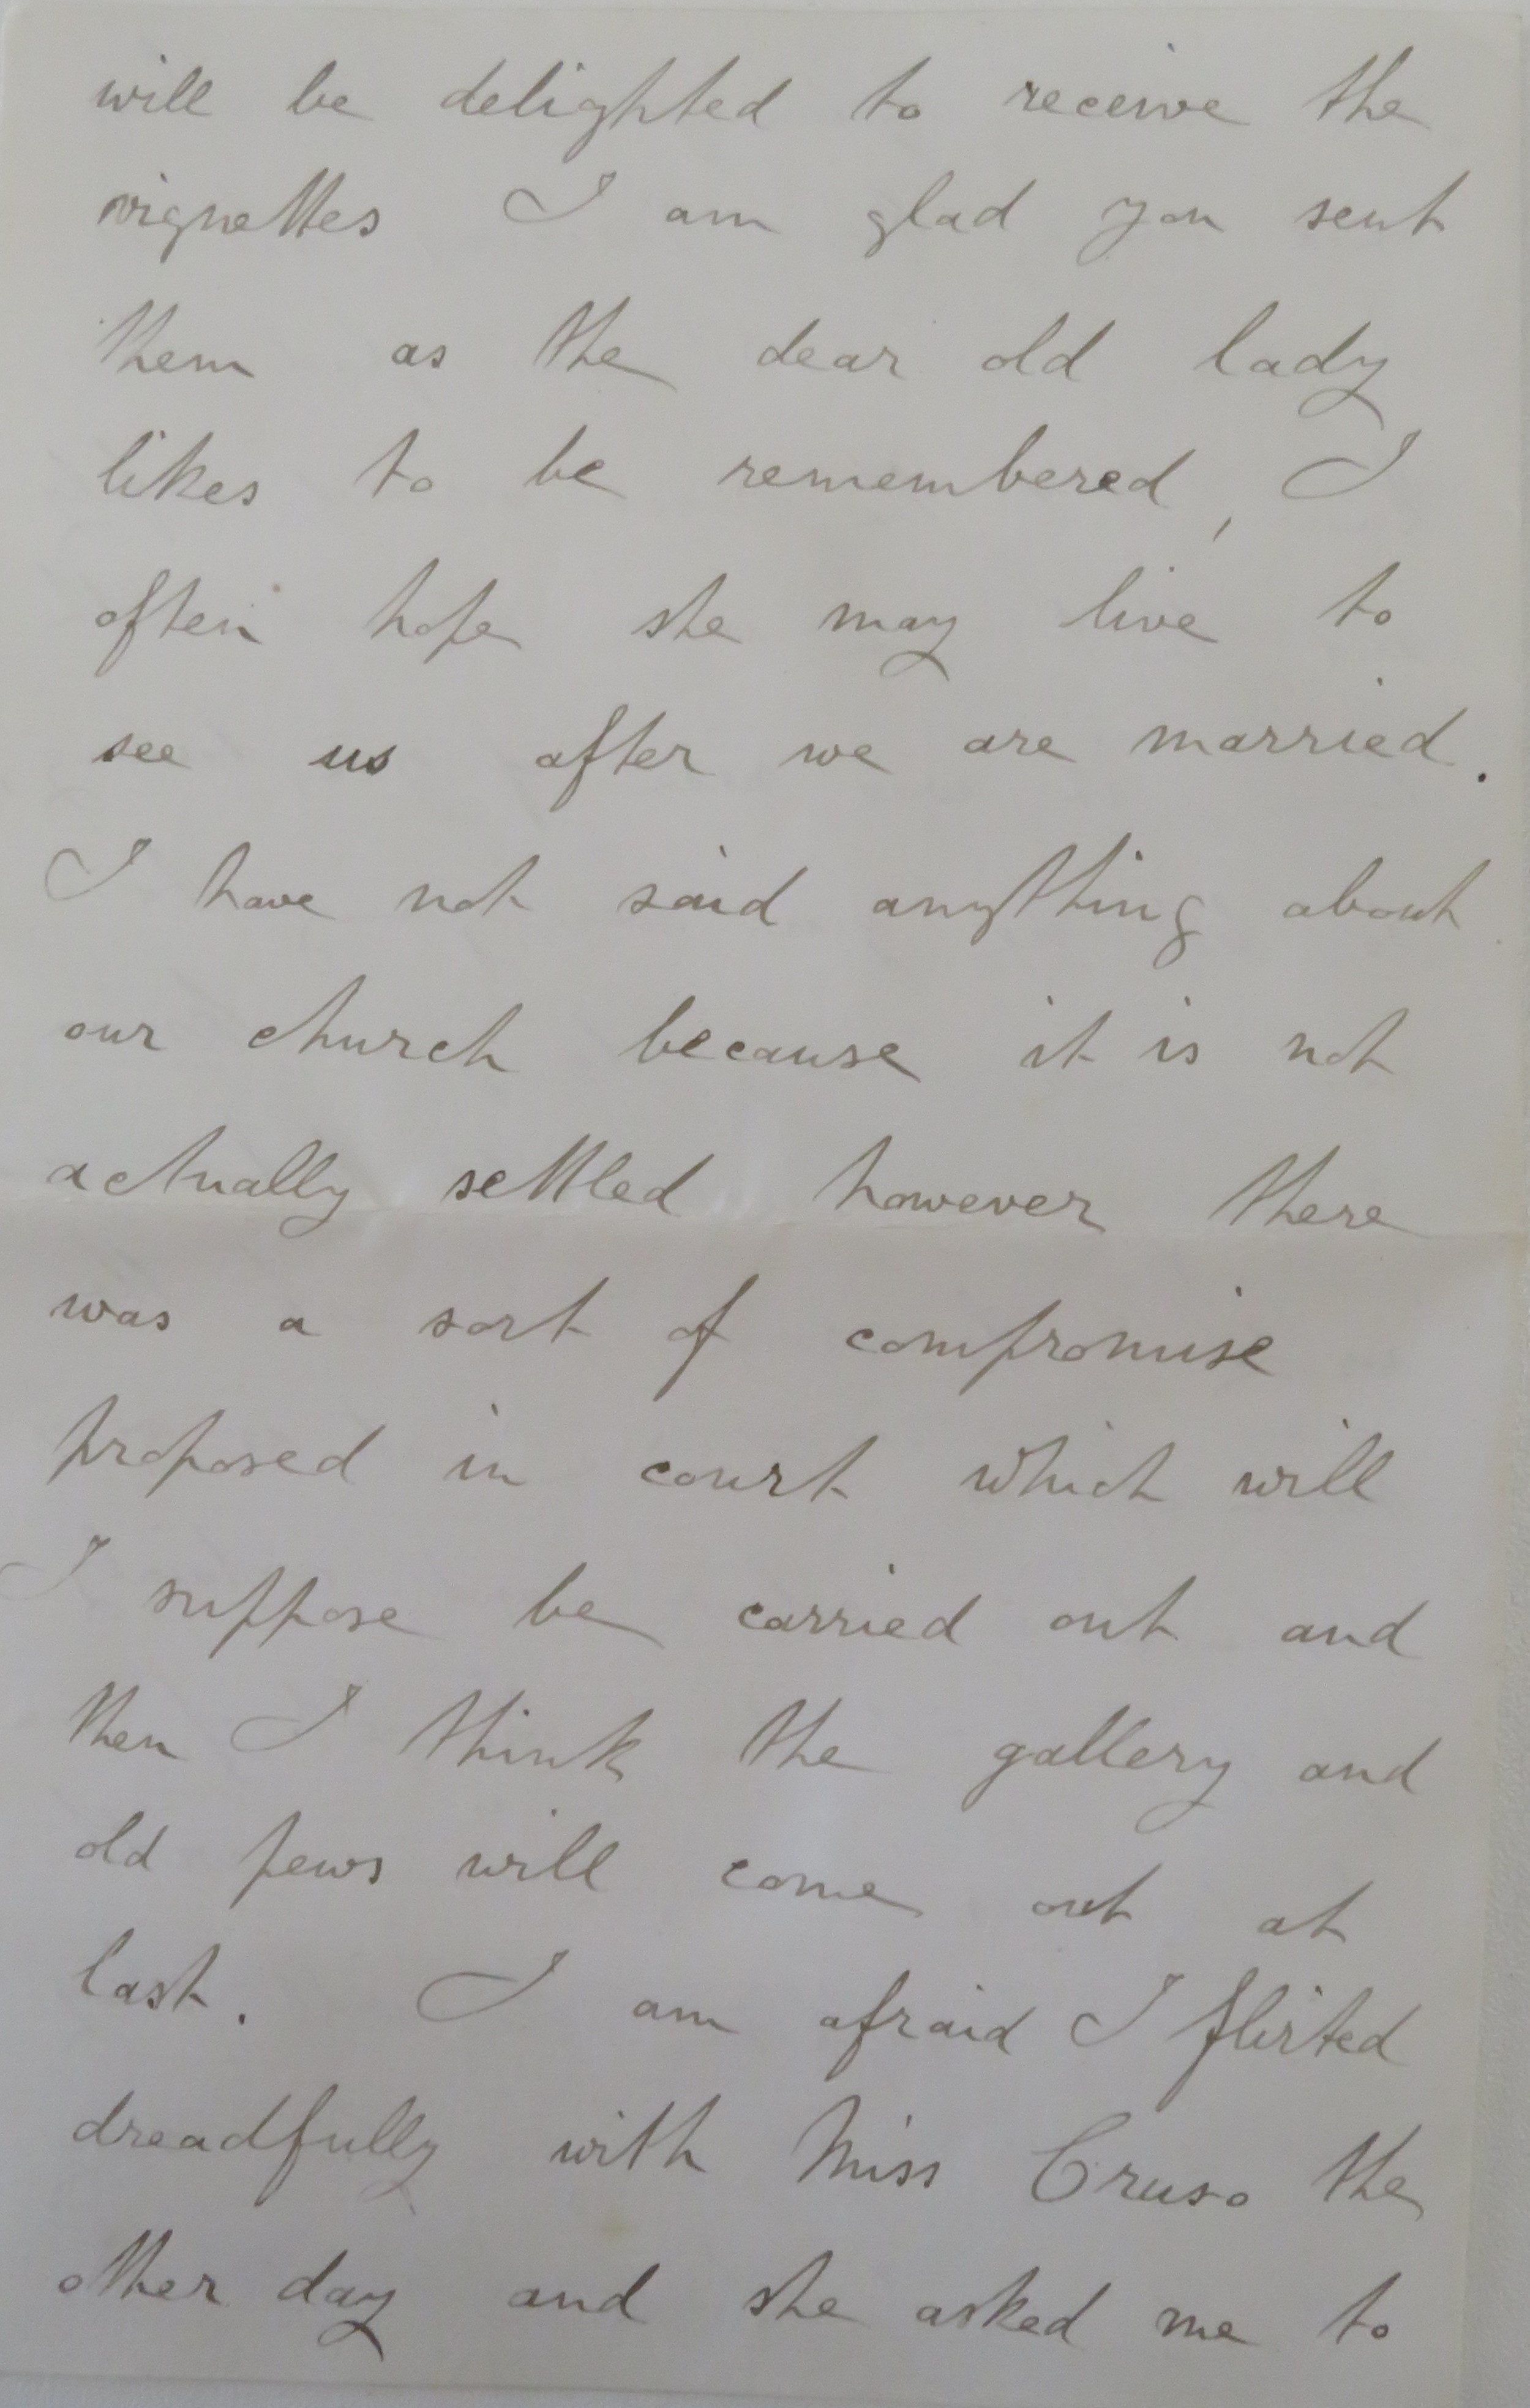 will be delighted to receive the
vignettes I am glad you sent
them as the dear old lady
likes to be remembered, I
often hope she may live to
see us after we are married.
I have not said anything about
our church because it is not
actually settled however there
was a sort of compromise
proposed in court which will
I suppose be carried out and
then I think the gallery and
old pews will come out at
last. I am afraid I flirted
dreadfully with Miss Cruso the
other day and she asked me to